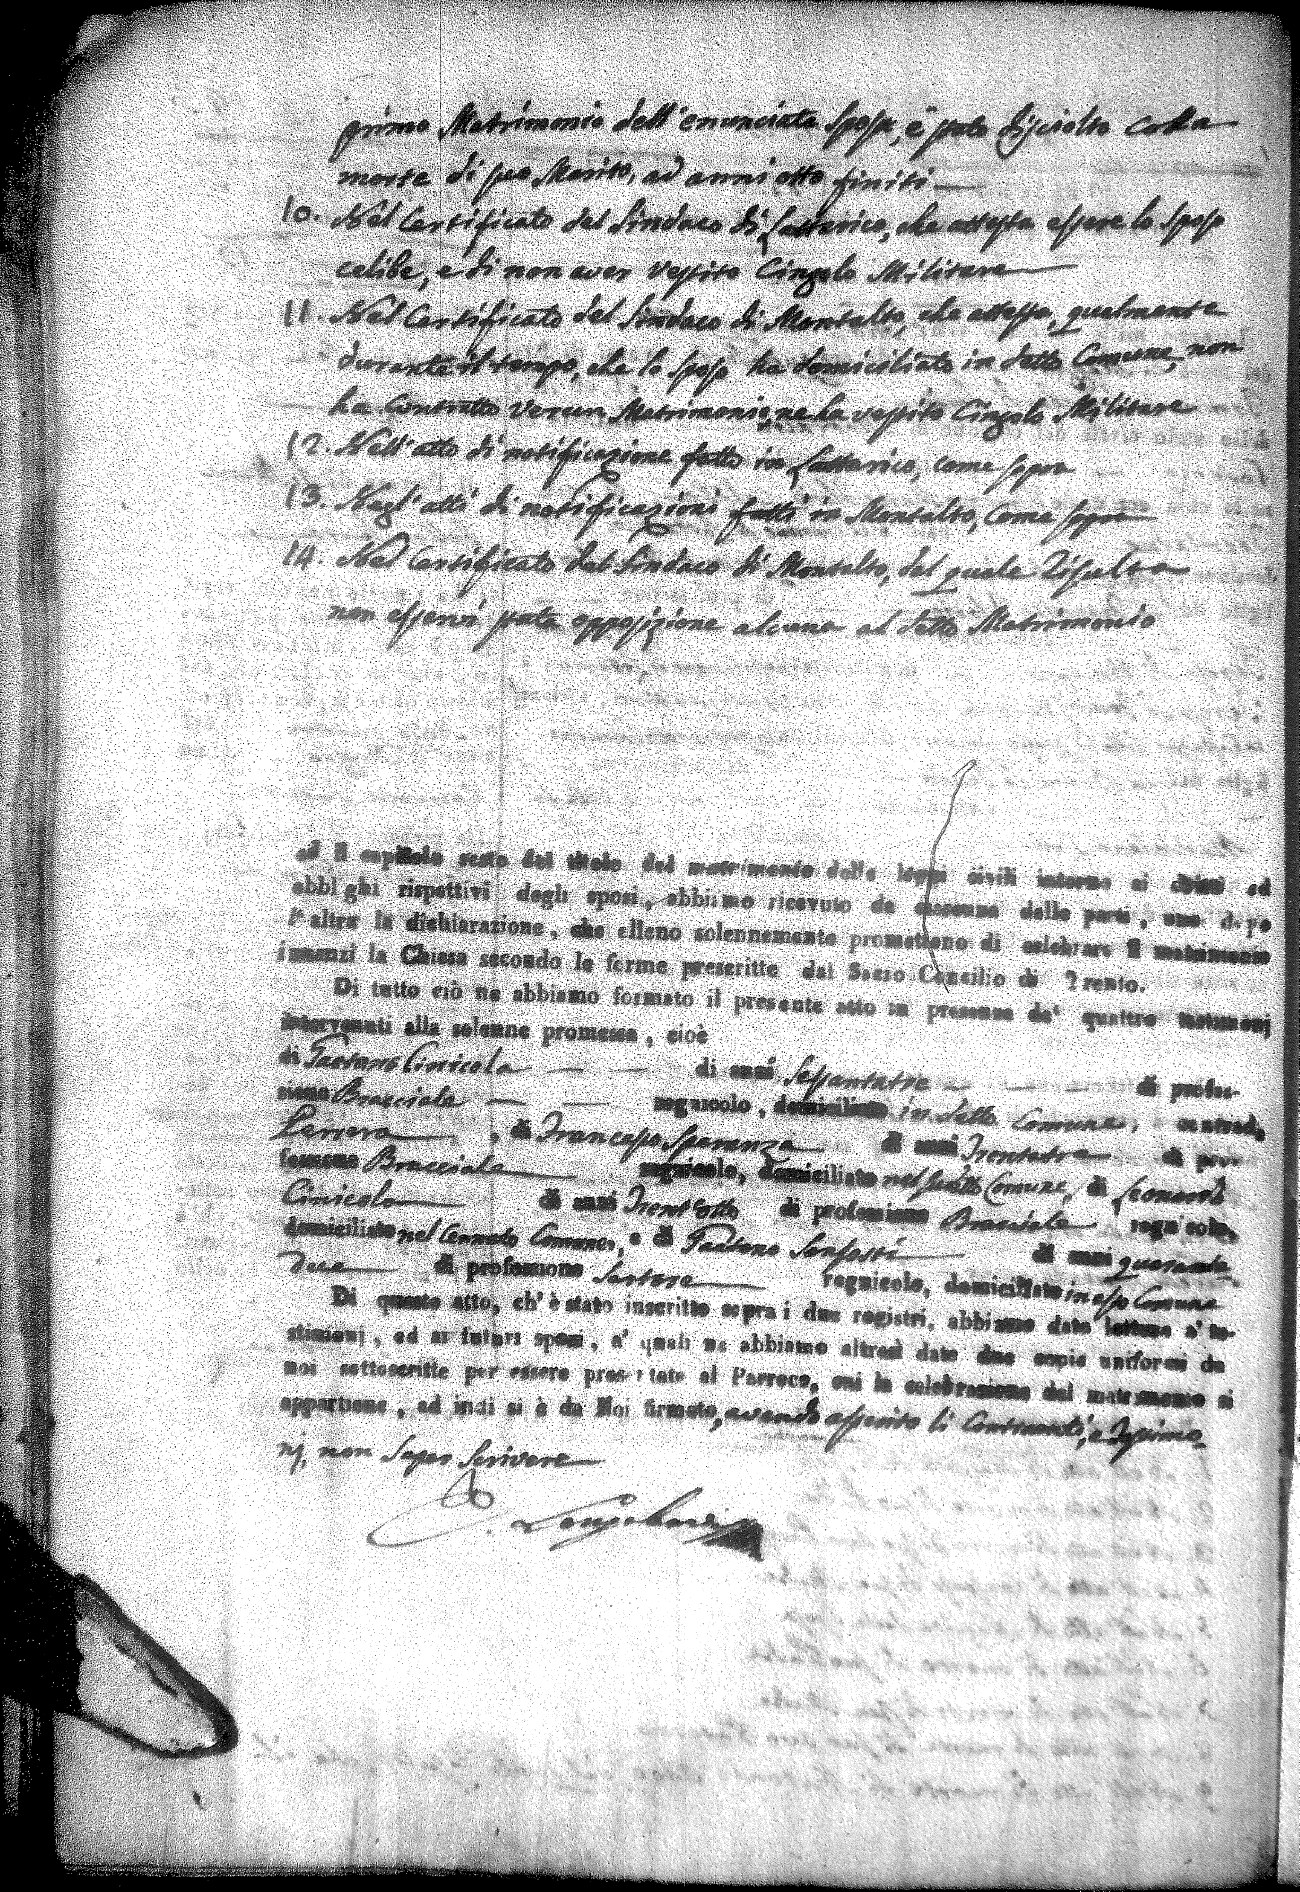 primo Matrimonio dell'enunciata Sposa, è stato disciolto colla
morte di suo Marito, ad anni otto finiti
10. Nel Certificato del Sindaco di Lattarico, che attesta essere lo sposo
celibe, e di non aver vestito Cingolo Militare
11. Nel Certificato del Sindaco di Montalto, che attesta, qualmente
durante il tempo, che lo sposo ha domiciliato in detto Comune, non
ha Contratto verun Matrimonio, ne ha vestito Cingolo Militare
12. Nell'atto di notificazione fatto in Lattarico, come sopra
13. Negl'atti di notificazioni fatti in Montalto, come sopra
14. Nel Certificato del Sindaco di Montalto, dal quale Risulta
non esservi stata opposizione alcuna al detto Matrimonio
ed il capitolo sesto del titolo del matrimonio delle leggi civili intorno ai dritti ed
obblighi rispettivi degli sposi, abbiamo ricevuto da ciascuna delle parti, una dopo
l'altra la dichiarazione, che elleno solennemente promettono di celebrare il matrimonio
innanzi la Chiesa secondo le forme prescritte dal Sacro Concilio di Trento.
Di tutto ciò ne abbiamo formato il presente atto in presenza de' quattro testimonj
intervenuti alla solenne promessa, cioè
di Gaetano Cinicola di anni Sessantatre di profes-
sione Bracciale regnicolo, domiciliato in detto Comune, contrada
Perrera, di Francesco Speranza di anni Trentatre di pro-
fessione Bracciale regnicolo, domiciliato nel sudetto Comune, di Leonardo
Cinicola di anni Trentotto di professione Bracciale regnicolo,
domiciliato nel Cennato Comune, e di Gaetano Sanfossi di anni quaranta
due di professione Sartore regnicolo, domiciliato in esso Comune
Di questo atto, ch'è stato inscritto sopra i due registri, abbiamo dato lettura a' te-
stimonj, ed ai futuri sposi, a' quali ne abbiamo altresì dato due copie uniformi da
noi sottoscritte per essere presentate al Parroco, cui la celebrazione del matrimonio si
appartiene, ed indi si è da Noi firmato, avendo asserito li Contraenti, e Testimo-
nj, non Saper Scrivere